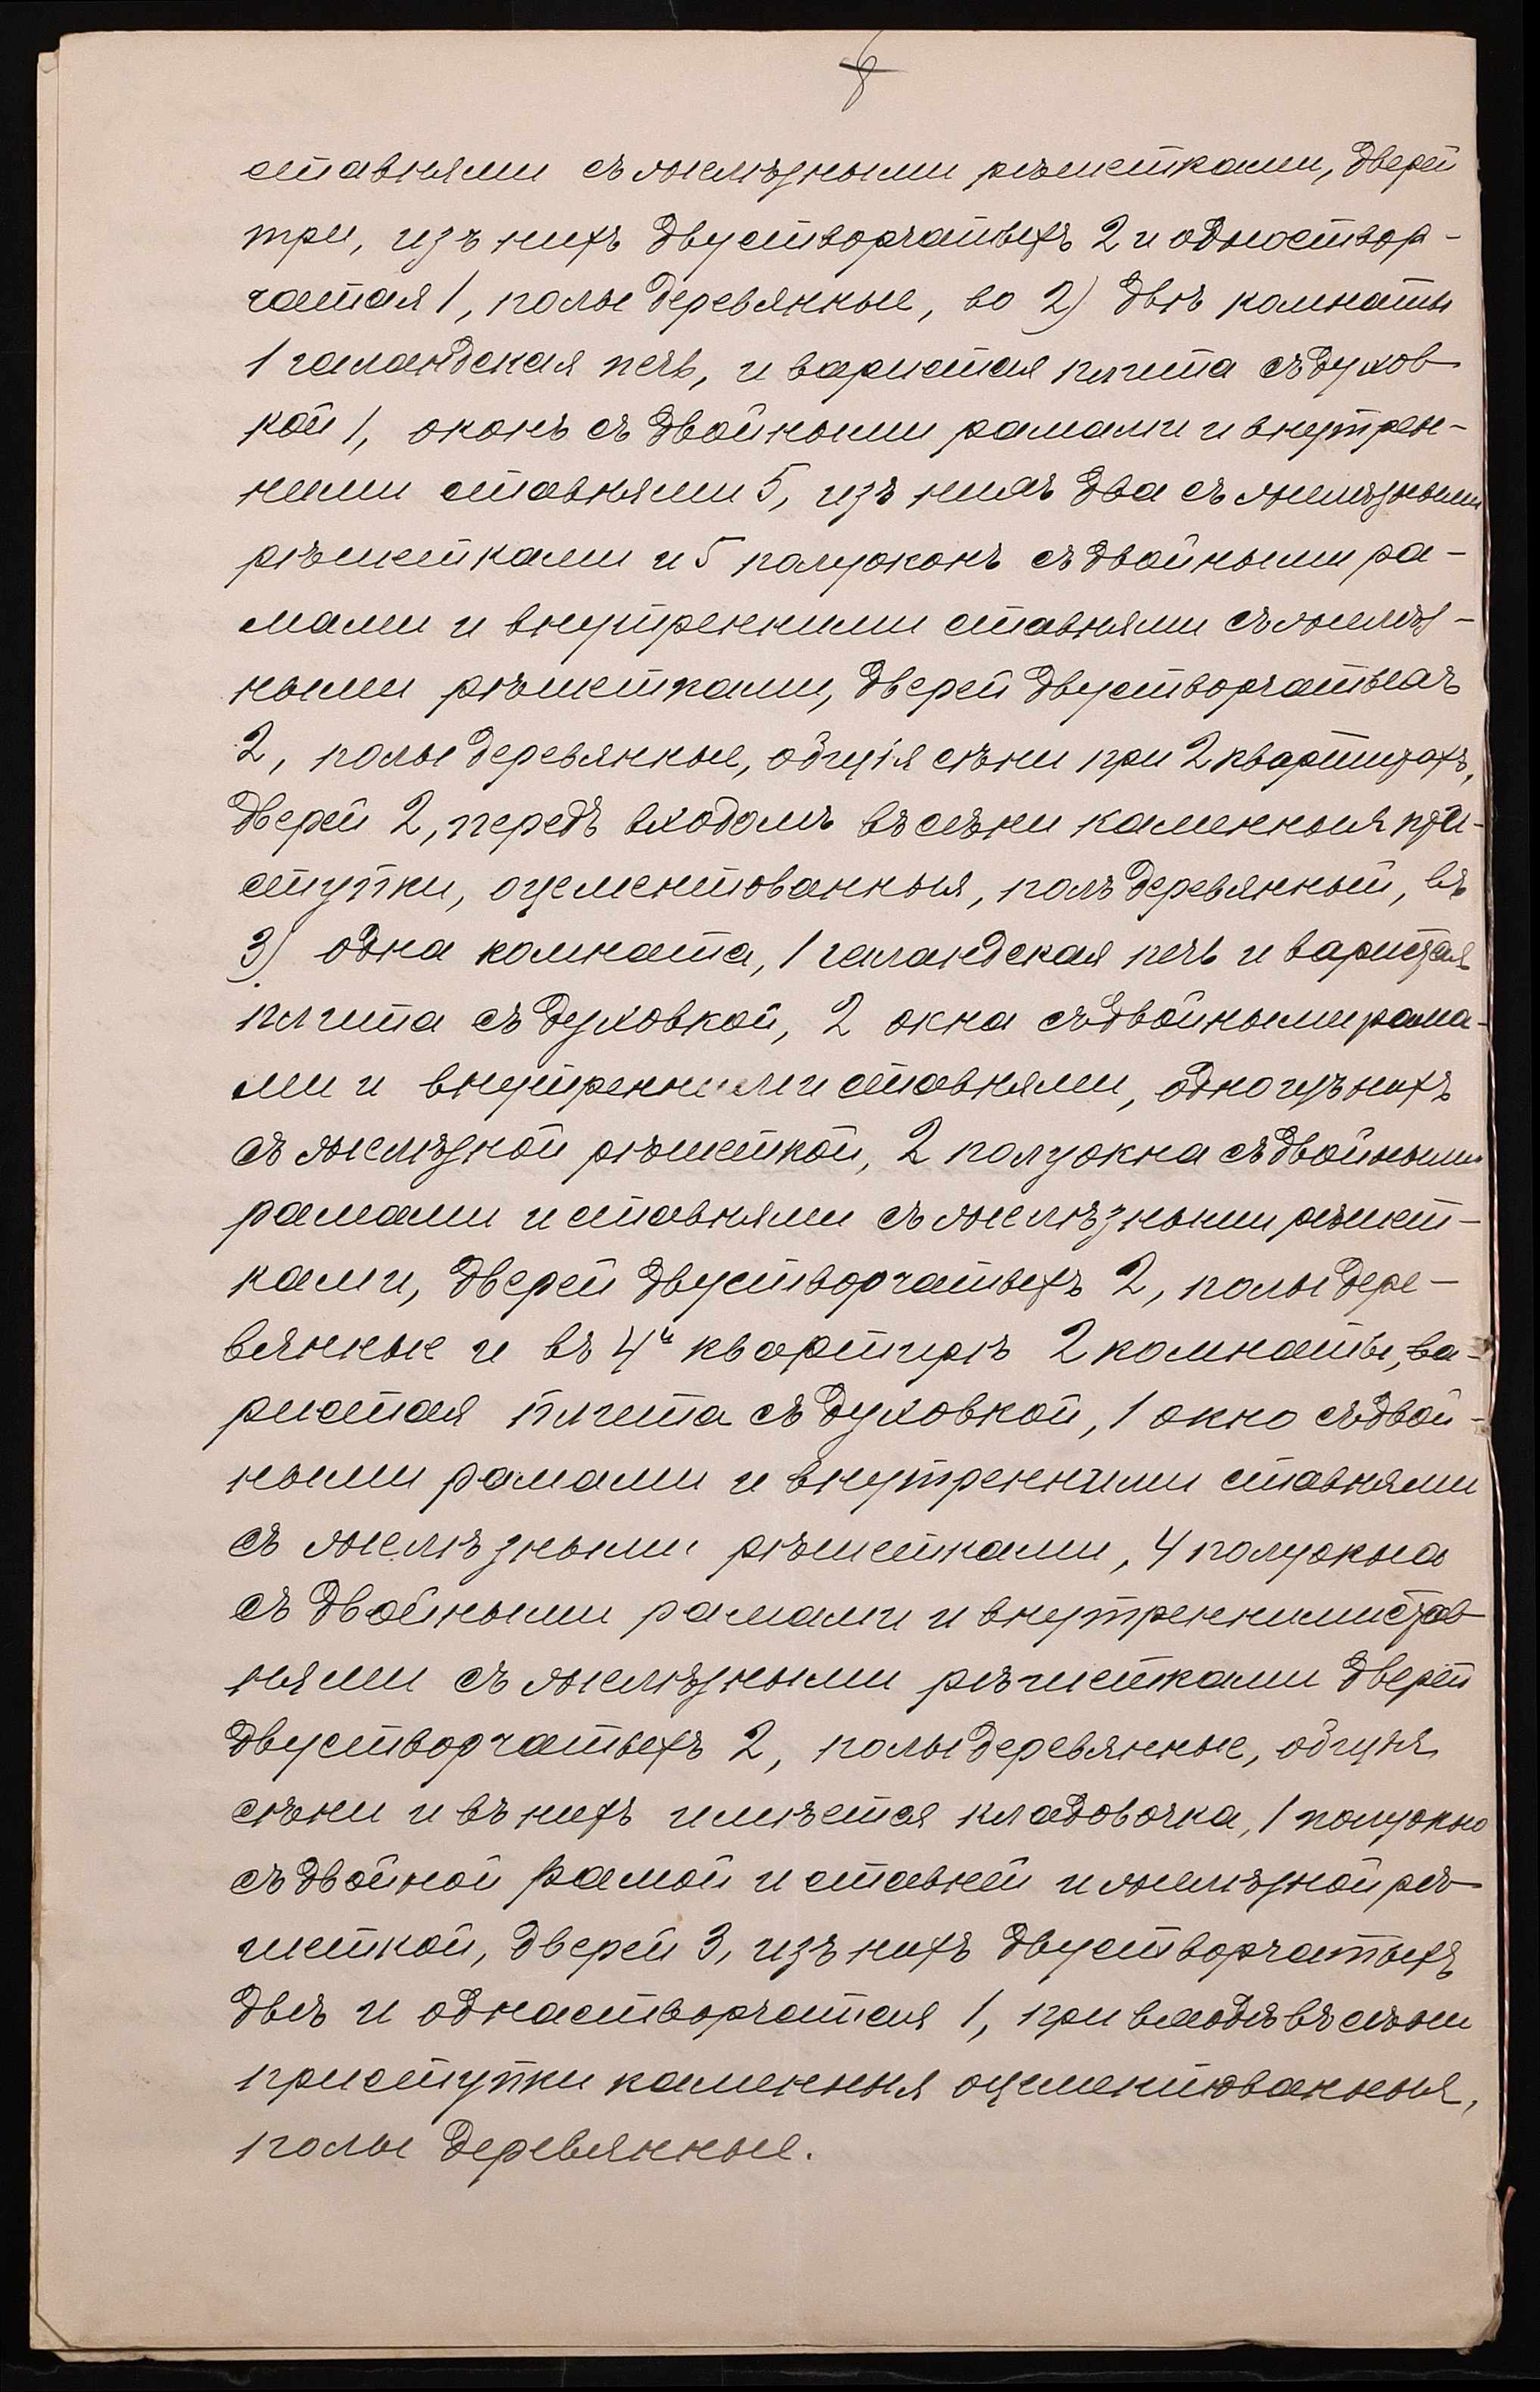 ставнями съ желѣзными рѣшетками, дверей
три, изъ нихъ двустворчатыхъ 2 и одноствор-
чатая 1, полы деревянные, во 2) двѣ комнаты
1 галандская печь, и варистая плита съ духов-
кой 1, оконъ съ двойными рамами и внутрен-
ними ставнями 5, изъ нихъ два съ желѣзными
рѣшетками и 5 полуоконъ съ двойными ра-
мами и внутренними ставнями съ желѣз-
ными рѣшетками, дверей двустворчатыхъ
2, полы деревянные, общія сѣни при 2 квартирахъ,
дверей 2, передъ входомъ въ сѣни каменныя при-
ступки, оцементованныя, полъ деревянный, въ
3) одна комната, 1 галандская печь и варистая
плита съ духовкой, 2 окна съ двойными рама-
ми и внутренними ставнями, одно изъ нихъ
съ желѣзной рѣшеткой, 2 полуокна съ двойными
рамами и ставнями съ желѣзными рѣшет-
ками, дверей двустворчатыхъ 2, полы дере-
вянные и въ 4й квартирѣ 2 комнаты, ва-
ристая плита съ духовкой, 1 окно съ двой-
ными рамами и внутренними ставнями
съ желѣзными рѣшетками, 4 полуокна
съ двойными рамами и внутренними став-
нями съ желѣзными рѣшетками дверей
двустворчатыхъ 2, полы деревянные, общія
сѣни и въ нихъ имѣется кладовочка, 1 полуокно
съ двойной рамой и ставней и желѣзной рѣ-
шеткой, дверей 3, изъ нихъ двустворчатыхъ
двѣ и одностворчатая 1, при входѣ въ сѣни
приступки каменныя оцементованныя,
полы деревянные.